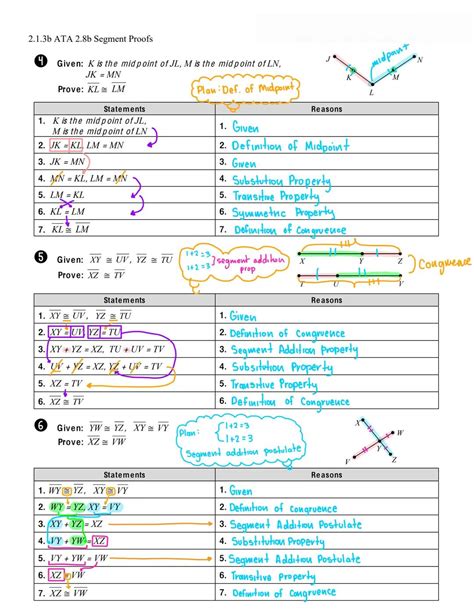 2.1.3b ATA 2.8b Segment Proofs
4 Given: K is the midpoint of JL, M is the midpoint of LN,
JK = MN
Prove: KL ≅ LM
Plan: Def. of Midpoint
J K L M N midpoint
Statements Reasons
1. K is the midpoint of JL, M is the midpoint of LN 1. Given
2. JK = KL, LM = MN 2. Definition of Midpoint
3. JK = MN 3. Given
4. MN = KL, LM = MN 4. Substution Property
5. LM = KL 5. Transitive Property
6. KL = LM 6. Symmetric Property
7. KL ≅ LM 7. Definition of Congruence
5 Given: XY ≅ UV, YZ ≅ TU
Prove: XZ ≅ TV
1+2=3
1+2=3 } segment addition prop
X Y Z
T U V
Congruence
Statements Reasons
1. XY ≅ UV, YZ ≅ TU 1. Given
2. XY = UV, YZ = TU 2. Definition of Congruence
3. XY + YZ = XZ, TU + UV = TV 3. Segment Addition Property
4. UV + YZ = XZ, YZ + UV = TV 4. Substitution Property
5. XZ = TV 5. Transitive Property
6. XZ ≅ TV 6. Definition of Congruence
6 Given: YW ≅ YZ, XY ≅ VY
Prove: XZ ≅ VW
Plan: 1+2=3
1+2=3
Segment addition postulate
X W Y V Z
Statements Reasons
1. WY ≅ YZ, XY ≅ VY 1. Given
2. WY = YZ, XY = VY 2. Definition of Congruence
3. XY + YZ = XZ 3. Segment Addition Postulate
4. VY + YW = XZ 4. Substitution Property
5. VY + YW = VW 5. Segment Addition Postulate
6. XZ = VW 6. Transitive property
7. XZ ≅ VW 7. Definition of Congruence